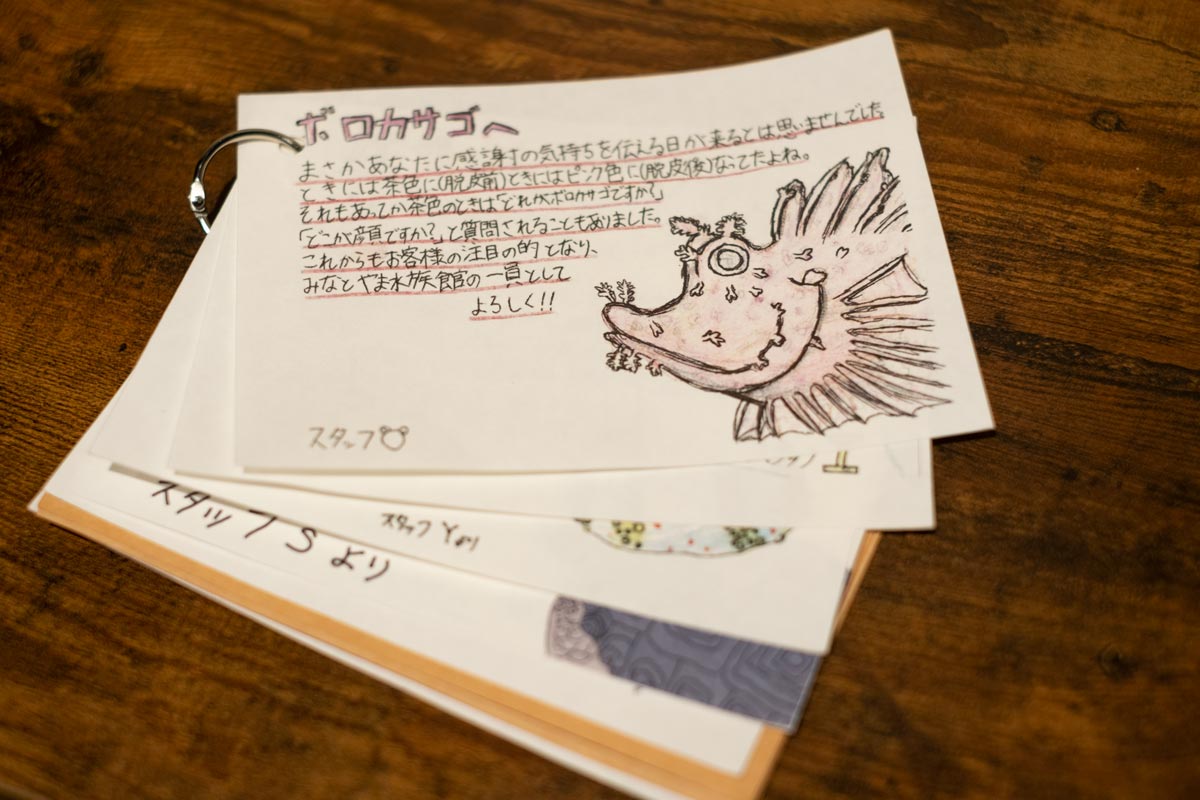 ボロカサゴへ
まさかあなたに感謝の気持ちを伝える日が来るとは思いませんでした。
ときには茶色に(脱皮前)ときにはピンク色に(脱皮後)なってたよね。
それもあってか茶色のときは「どれがボロカサゴですか?」
「どこが顔ですか?」と質問されることもありました。
これからもお客様の注目の的となり、
みなとやま水族館の一員として
よろしく!!
スタッフ
スタッフYより
スタッフSより